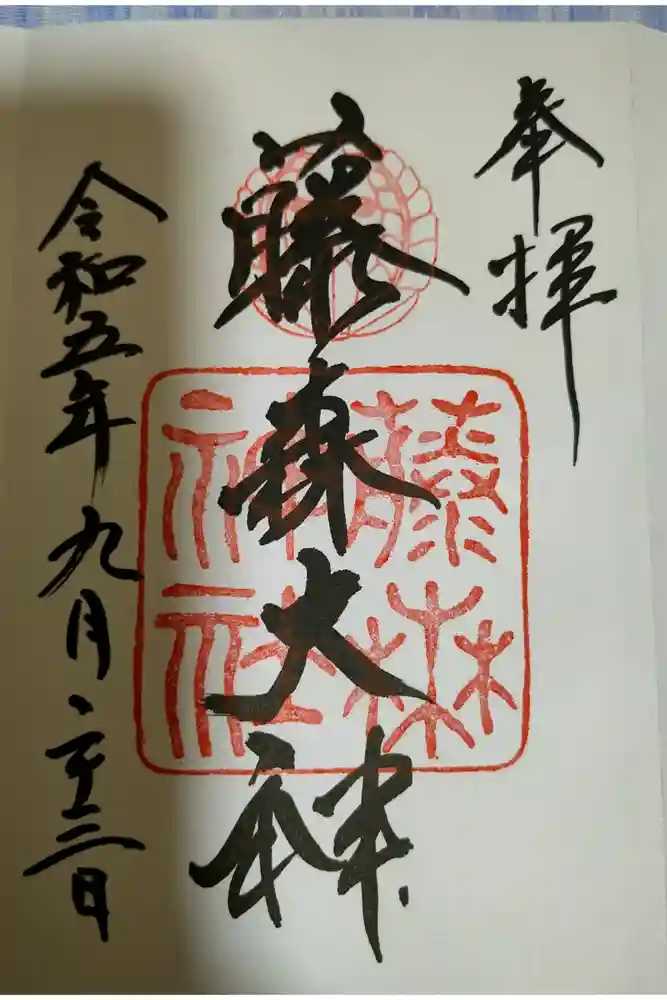 奉拝
藤森大神
藤森
神社
令和五年九月二十三日